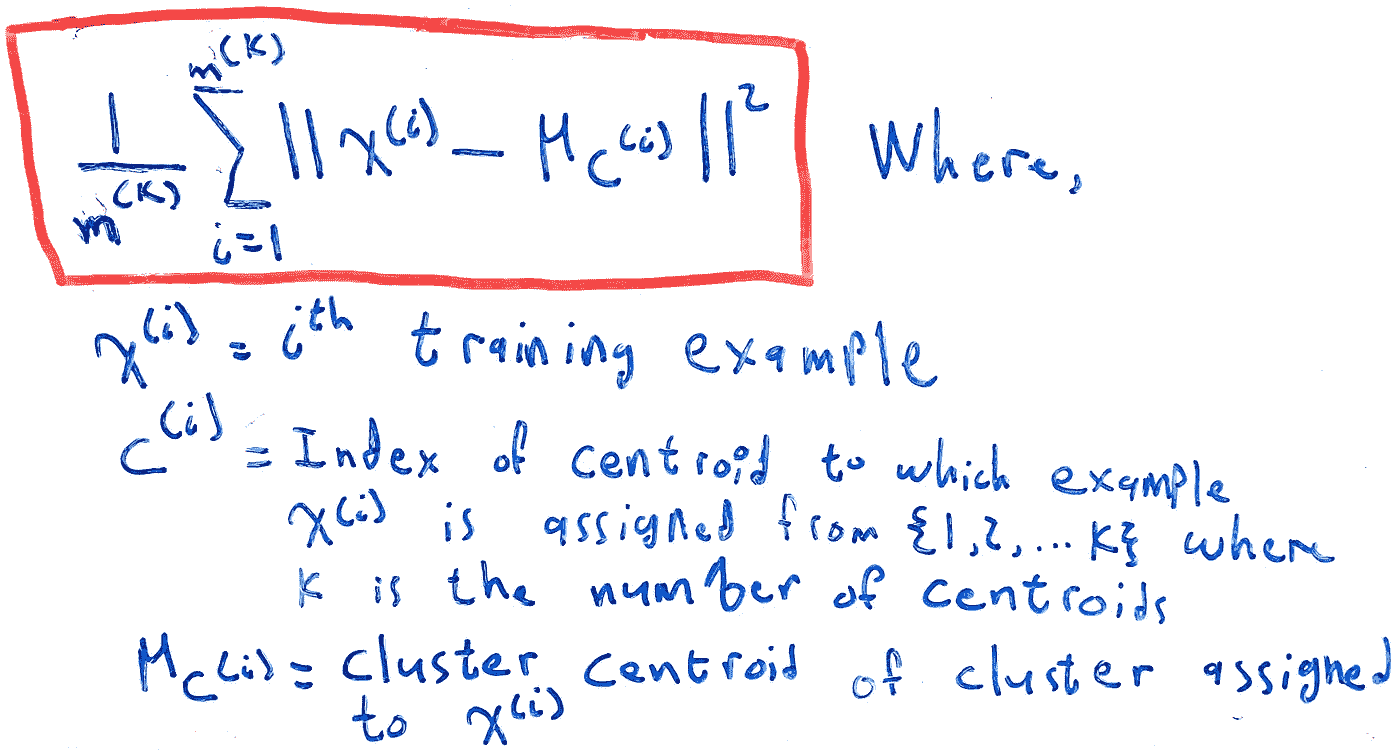 1/m^(K) Σ_{i=1}^{m^(K)} || x^(i) - μ_c^(i) ||^2 Where,
x^(i) = i^th training example
c^(i) = Index of centroid to which example
x^(i) is assigned from {1,2,... K} where
K is the number of centroids
μ_c^(i) = cluster centroid of cluster assigned
to x^(i)